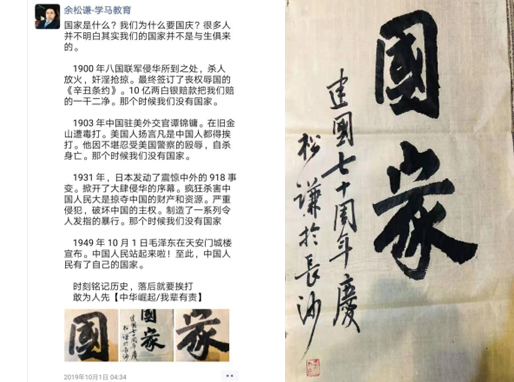 余松谦-学马教育
国家是什么？我们为什么要国庆？很多人
并不明白其实我们的国家并不是与生俱来
的。
1900 年八国联军侵华所到之处，杀人
放火，奸淫抢掠。最终签订了丧权辱国的
《辛丑条约》。10 亿两白银赔款把我们赔
的一干二净。那个时候我们没有国家。
1903 年中国驻美外交官谭锦镛。在旧金
山遭毒打。美国人扬言凡是中国人都得挨
打。他因不堪忍受美国警察的殴辱，自杀
身亡。那个时候我们没有国家。
1931 年，日本发动了震惊中外的 918 事
变。掀开了大肆侵华的序幕。疯狂杀害中
国人民大是掠夺中国的财产和资源。严重
侵犯，破坏中国的主权。制造了一系列令
人发指的暴行。那个时候我们没有国家
1949 年 10 月 1 日毛泽东在天安门城楼
宣布。中国人民站起来啦！至此，中国人
民有了自己的国家。
时刻铭记历史，落后就要挨打
敢为人先【中华崛起/我辈有责】
國
國家
建國七十周年慶
松謙於長沙
家
2019年10月1日 04:34
國家
建國七十周年慶
松謙於長沙